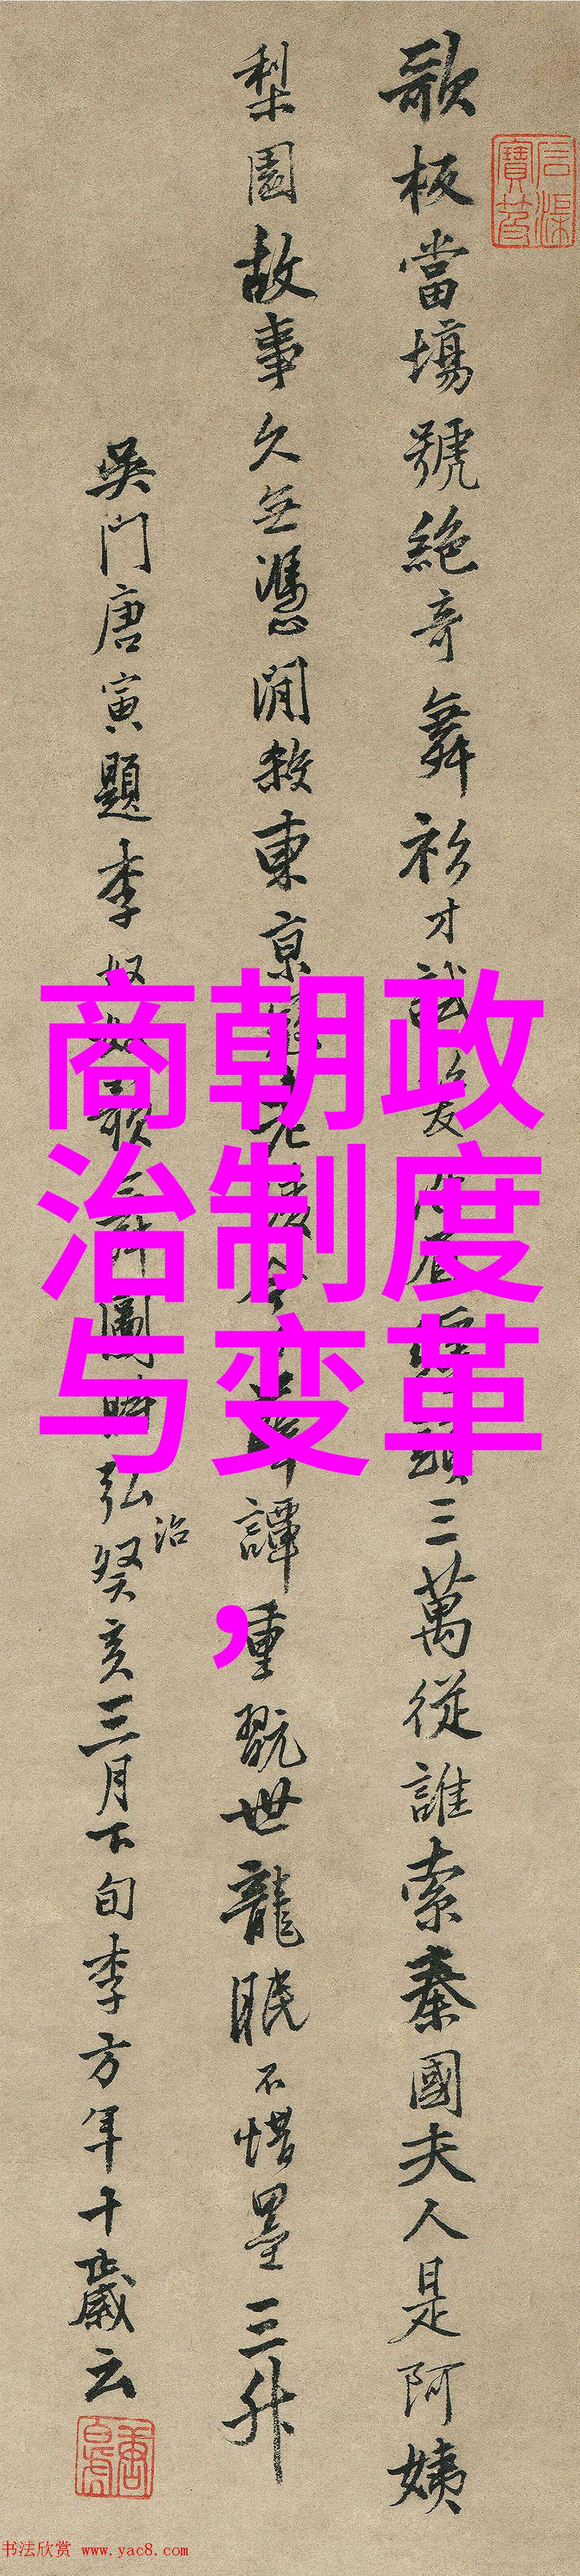 歌板當塲號絶奇舞衫才試纏頭三萬從誰索秦國夫人是阿姨
梨園故事久無憑閒殺東京譚重翫世龍眠不惜墨三升
吳門唐寅題李奴奴歌舞圖時弘治癸亥三月下旬李方年十歲云
商朝政
治制度
与变革
，
书法欣赏 www.yac8.com